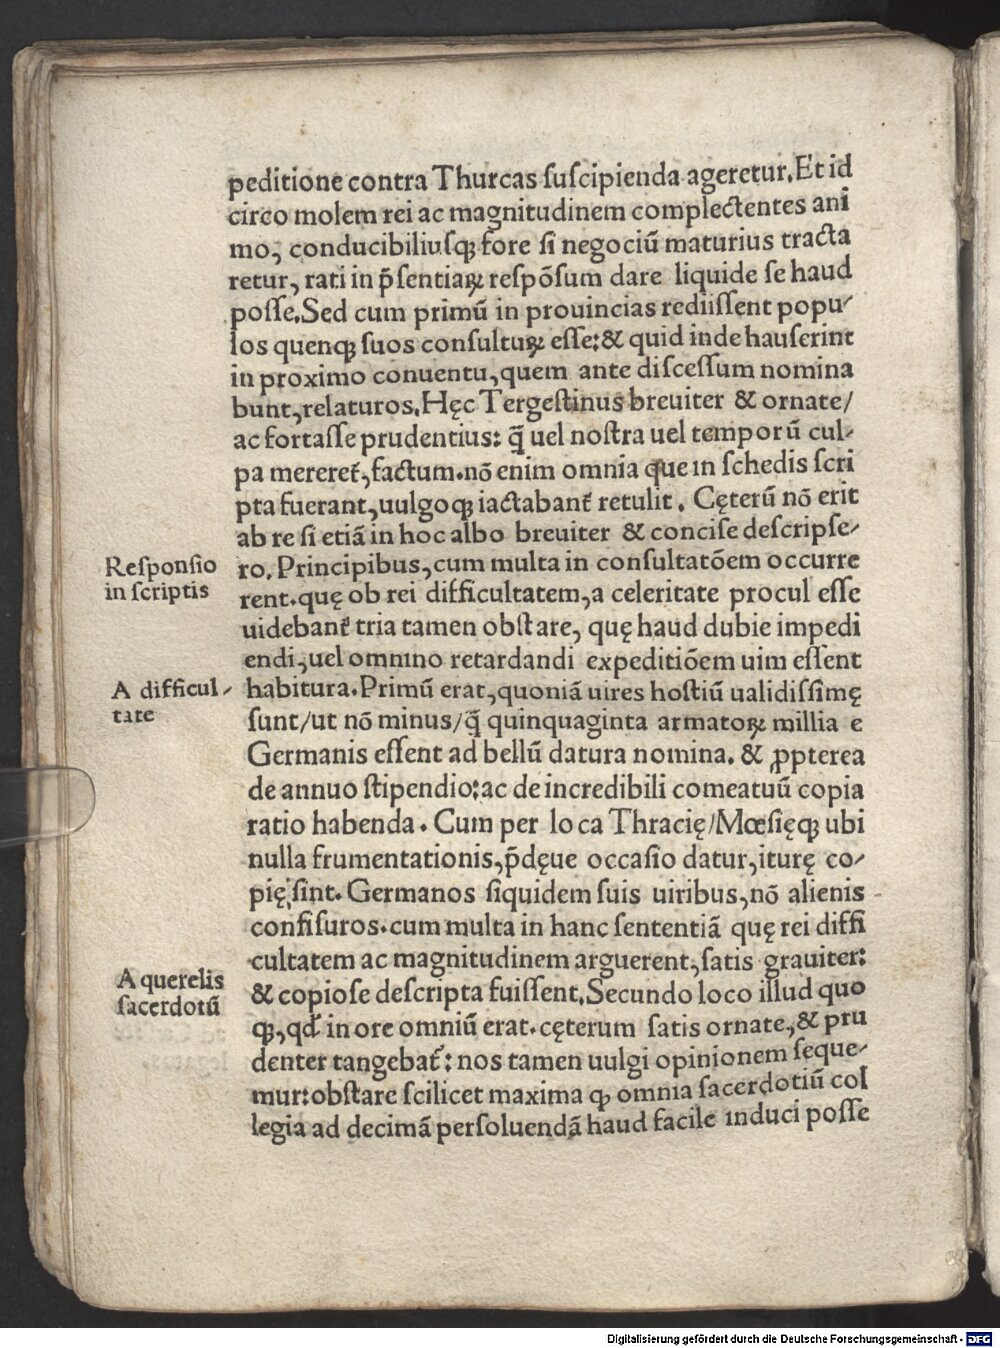 peditione contra Thurcas ſuſcipienda ageretur. Et id
circo molem rei ac magnitudinem complectentes ani
mo, conducibiliuſqꝫ fore ſi negociū maturius tracta
retur, rati in p̄ſentiaꝝ reſpōſum dare liquide ſe haud
poſſe. Sed cum primū in prouincias rediiſſent popu⸗
los quenqꝫ ſuos conſultuꝝ eſſe: & quid inde hauſerint
in proximo conuentu, quem ante diſceſſum nomina
bunt, relaturos. Hęc Tergeſtinus breuiter & ornate/
ac fortaſſe prudentius: q̄ uel noſtra uel temporū cul⸗
pa mereret᷑, factum. nō enim omnia que in ſchedis ſcri
pta fuerant, uulgoqꝫ iactabant᷑ retulit. Cęterū nō erit
ab re ſi etiā in hoc albo breuiter & conciſe deſcripſe⸗
Reſponſio
in ſcriptis
ro. Principibus, cum multa in conſultatōem occurre
rent. quę ob rei difficultatem, a celeritate procul eſſe
uidebant᷑ tria tamen obſtare, quę haud dubie impedi
endi, uel omnino retardandi expeditiōem uim eſſent
A difficul⸗
tate
habitura. Primū erat, quoniā uires hoſtiū ualidiſſimę
ſunt/ut nō minus/q̄ quinquaginta armatoꝝ millia e
Germanis eſſent ad bellū datura nomina. & ꝓpterea
de annuo ſtipendio: ac de incredibili comeatuū copia
ratio habenda. Cum per loca Thracię/Mœſięqꝫ ubi
nulla frumentationis, p̄dęue occaſio datur, iturę co⸗
pię ſint. Germanos ſiquidem ſuis uiribus, nō alienis
confiſuros. cum multa in hanc ſententiā quę rei diffi
A querelis
ſacerdotū
cultatem ac magnitudinem arguerent, ſatis grauiter:
& copioſe deſcripta fuiſſent. Secundo loco illud quo
qꝫ, qđ in ore omniū erat. cęterum ſatis ornate, & pru
denter tangebat᷑: nos tamen uulgi opinionem ſeque⸗
mur: obſtare ſcilicet maxima ꝙ omnia ſacerdotiū col
legia ad decimā perſoluendā haud facile induci poſſe
Digitalisierung gefördert durch die Deutsche Forschungsgemeinschaft - DFG